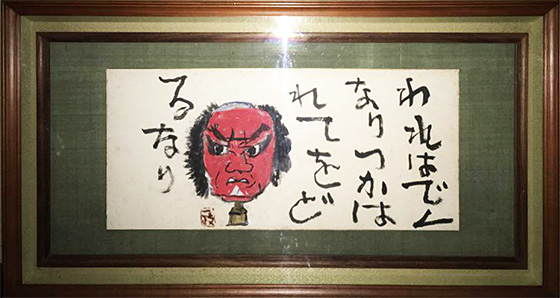 われはでく
なりつかは
れてをど
るなり